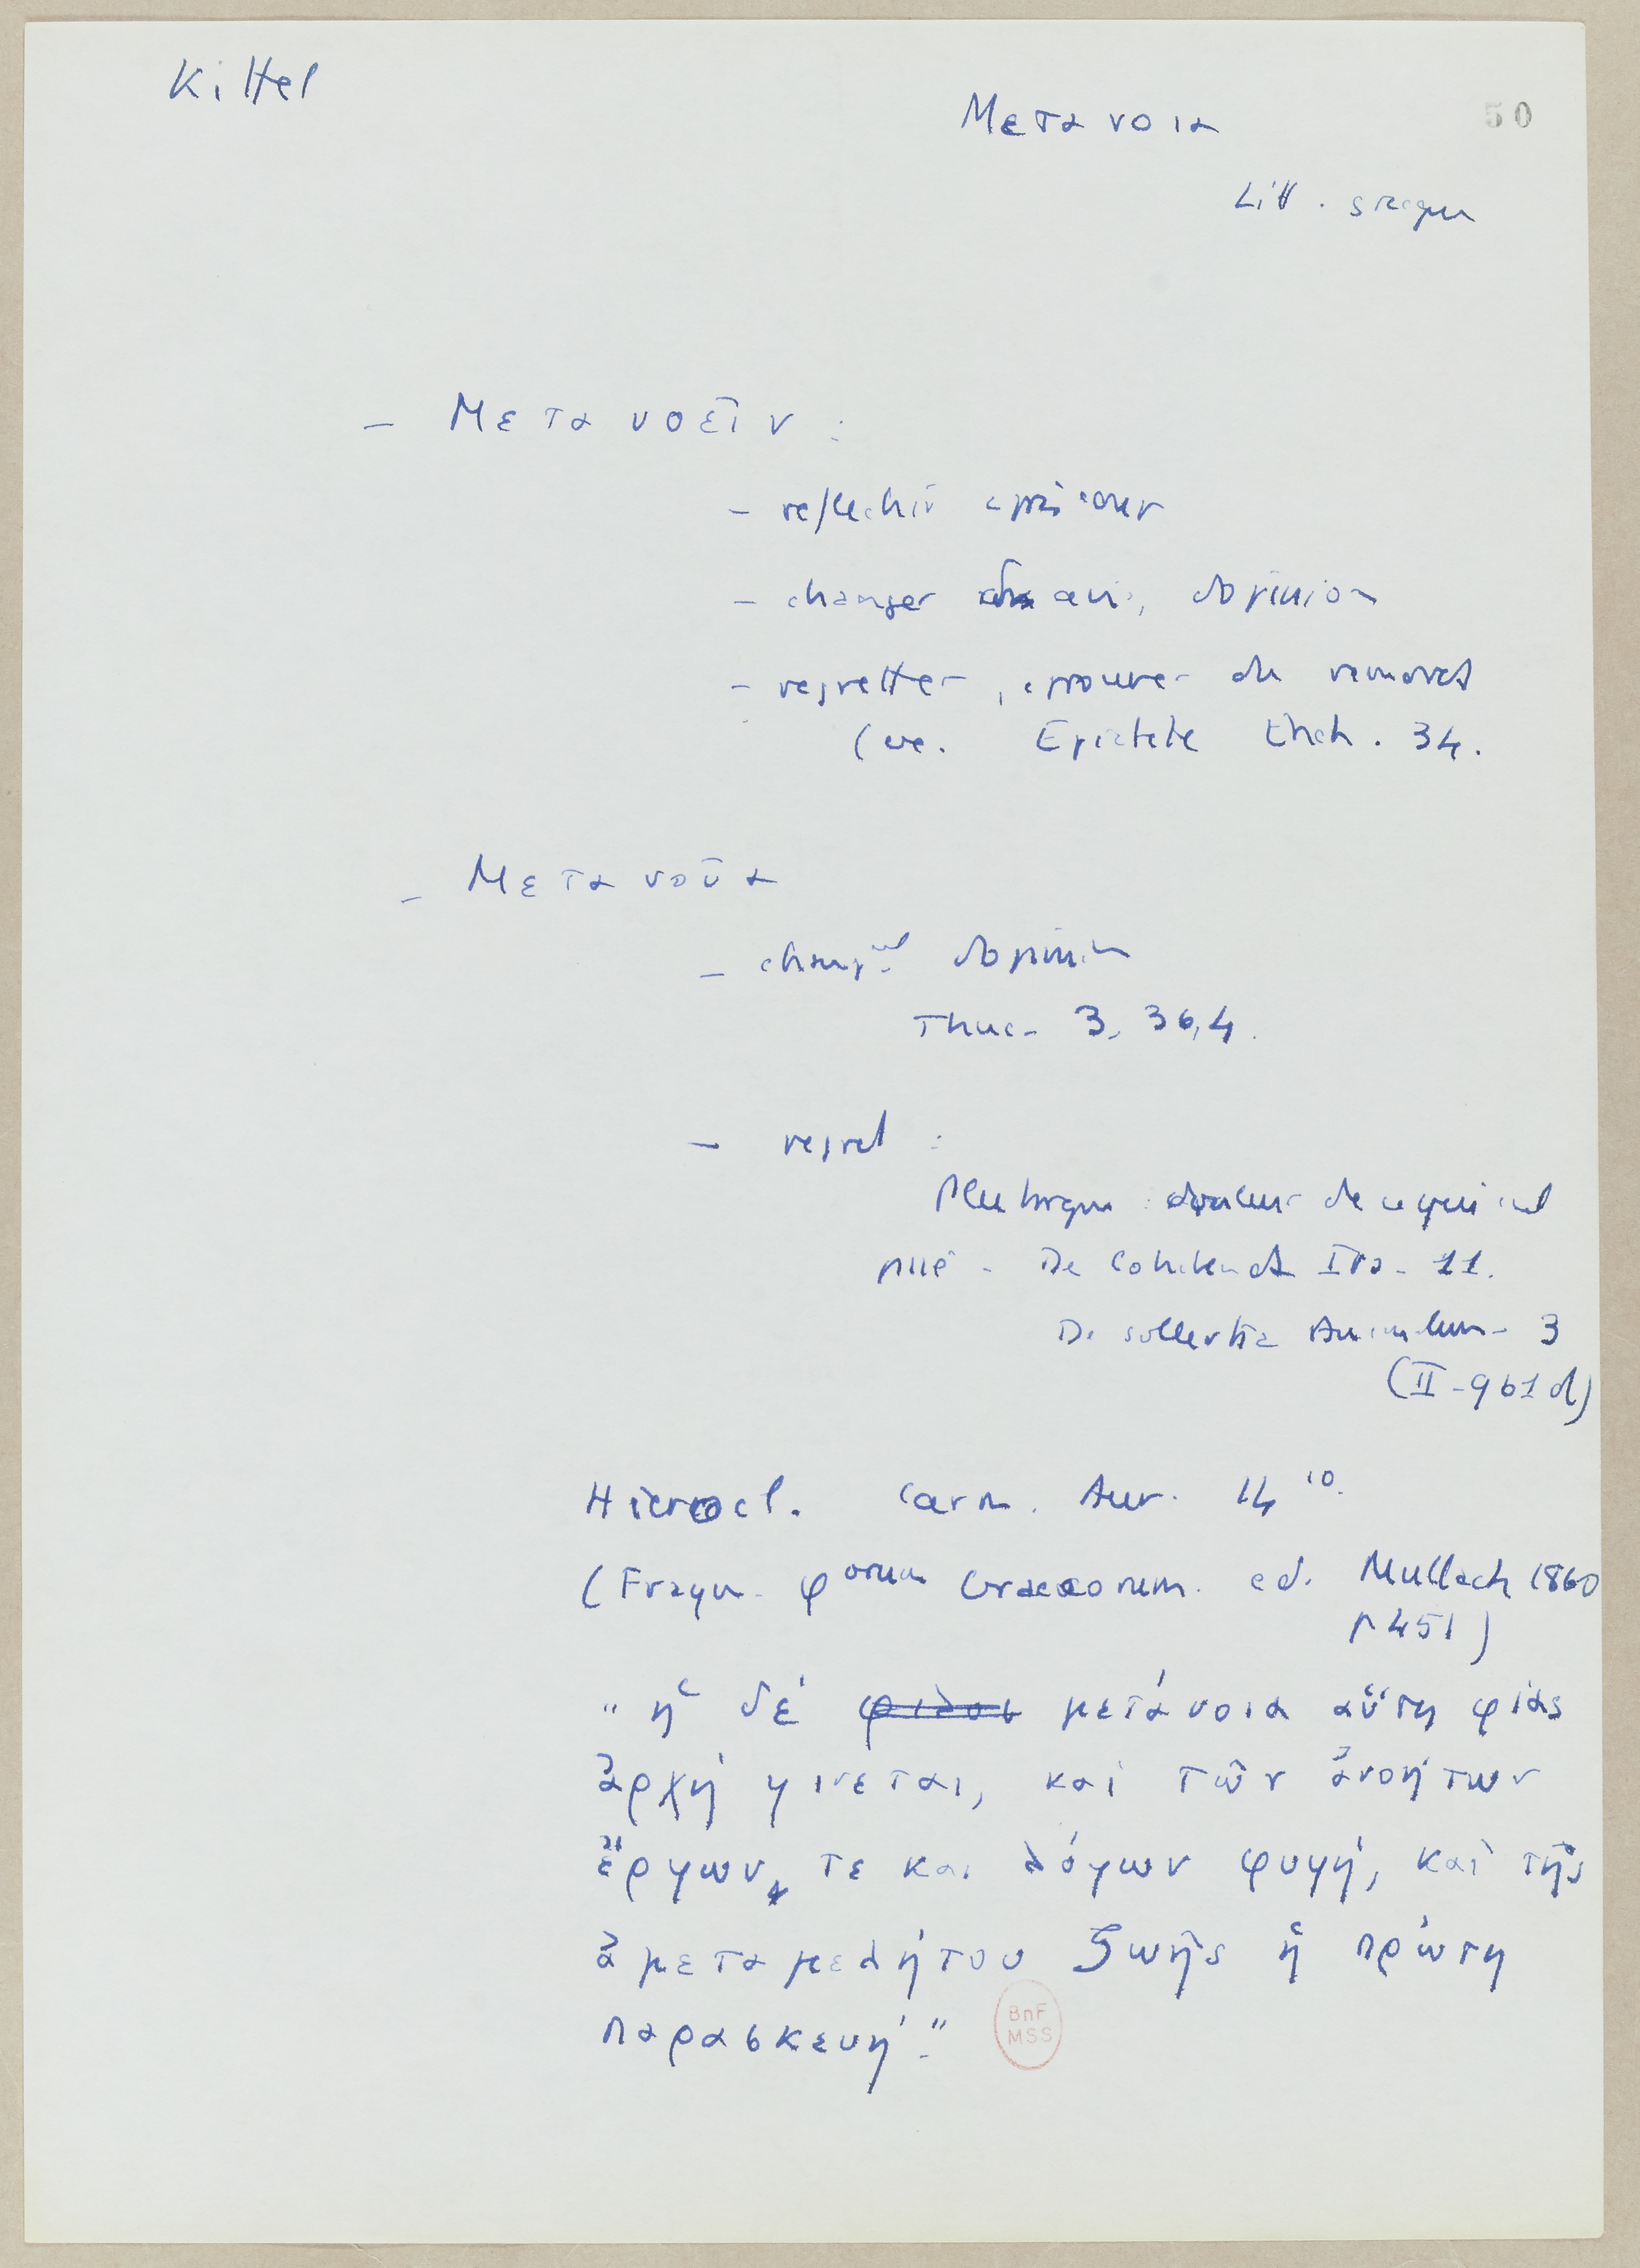 Kittel
Μετανοια
50
Litt. grecque
– Μετανοεῖν :
– reflechir après coup
– changer d'avis, d'opinion
– regretter, eprouver du remords
(ce. Epictete Ench. 34.
– Μετανοῦα
– changt d'opinion
Thuc. 3, 36,4.
– regret :
Plutarque : douleur de ce qui est
passé. De Cohibenda Ira. 11.
De sollertia Animalium. 3
(II-961d)
Hierocl. Carm. Aur. 14 10.
(Fragm. φorum Graecorum. ed. Mullach 1860
p 451)
" ἡ δέ μετάνοια αὕτη φιας
ἀρχή γινεται, και τῶν ἀνοήτων
ἔργων, τε και λόγων φυγή, καὶ τῆς
ἀμεταμελήτου ζωῆς ἡ πρώτη
παρασκευή."
BnF
MSS